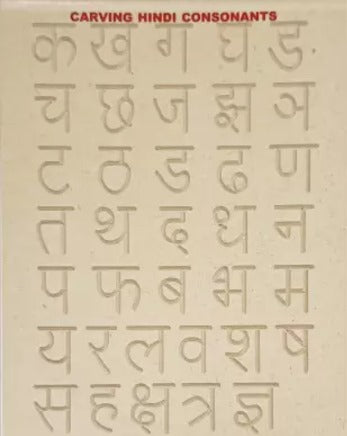 CARVING HINDI CONSONANTS
क ख ग घ ङ
च छ ज झ ञ
ट ठ ड ढ ण
त थ द ध न
प फ ब भ म
य र ल व श ष
स ह क्ष त्र ज्ञ